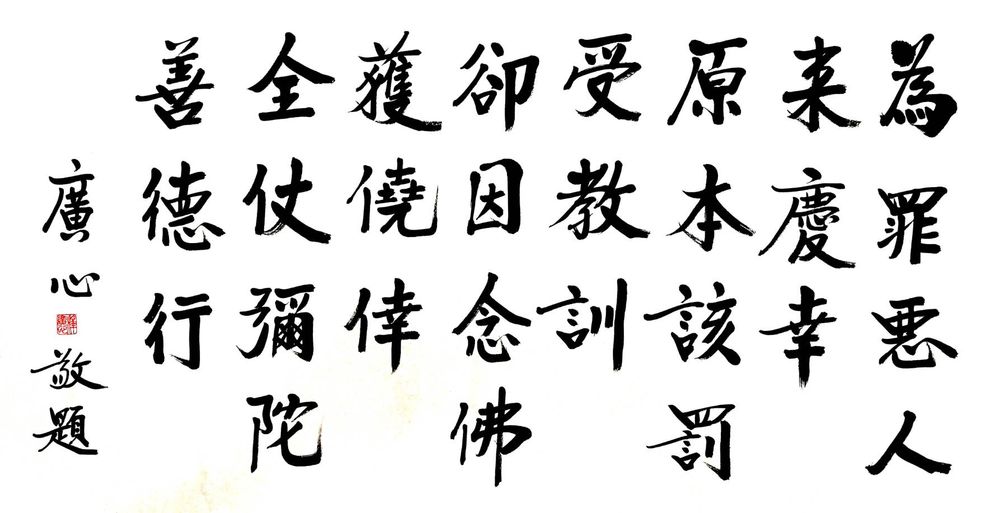 為罪惡人
来慶幸
原本該罰
受教訓
卻因念佛
獲僥倖
全仗彌陀
善德行
廣心敬題